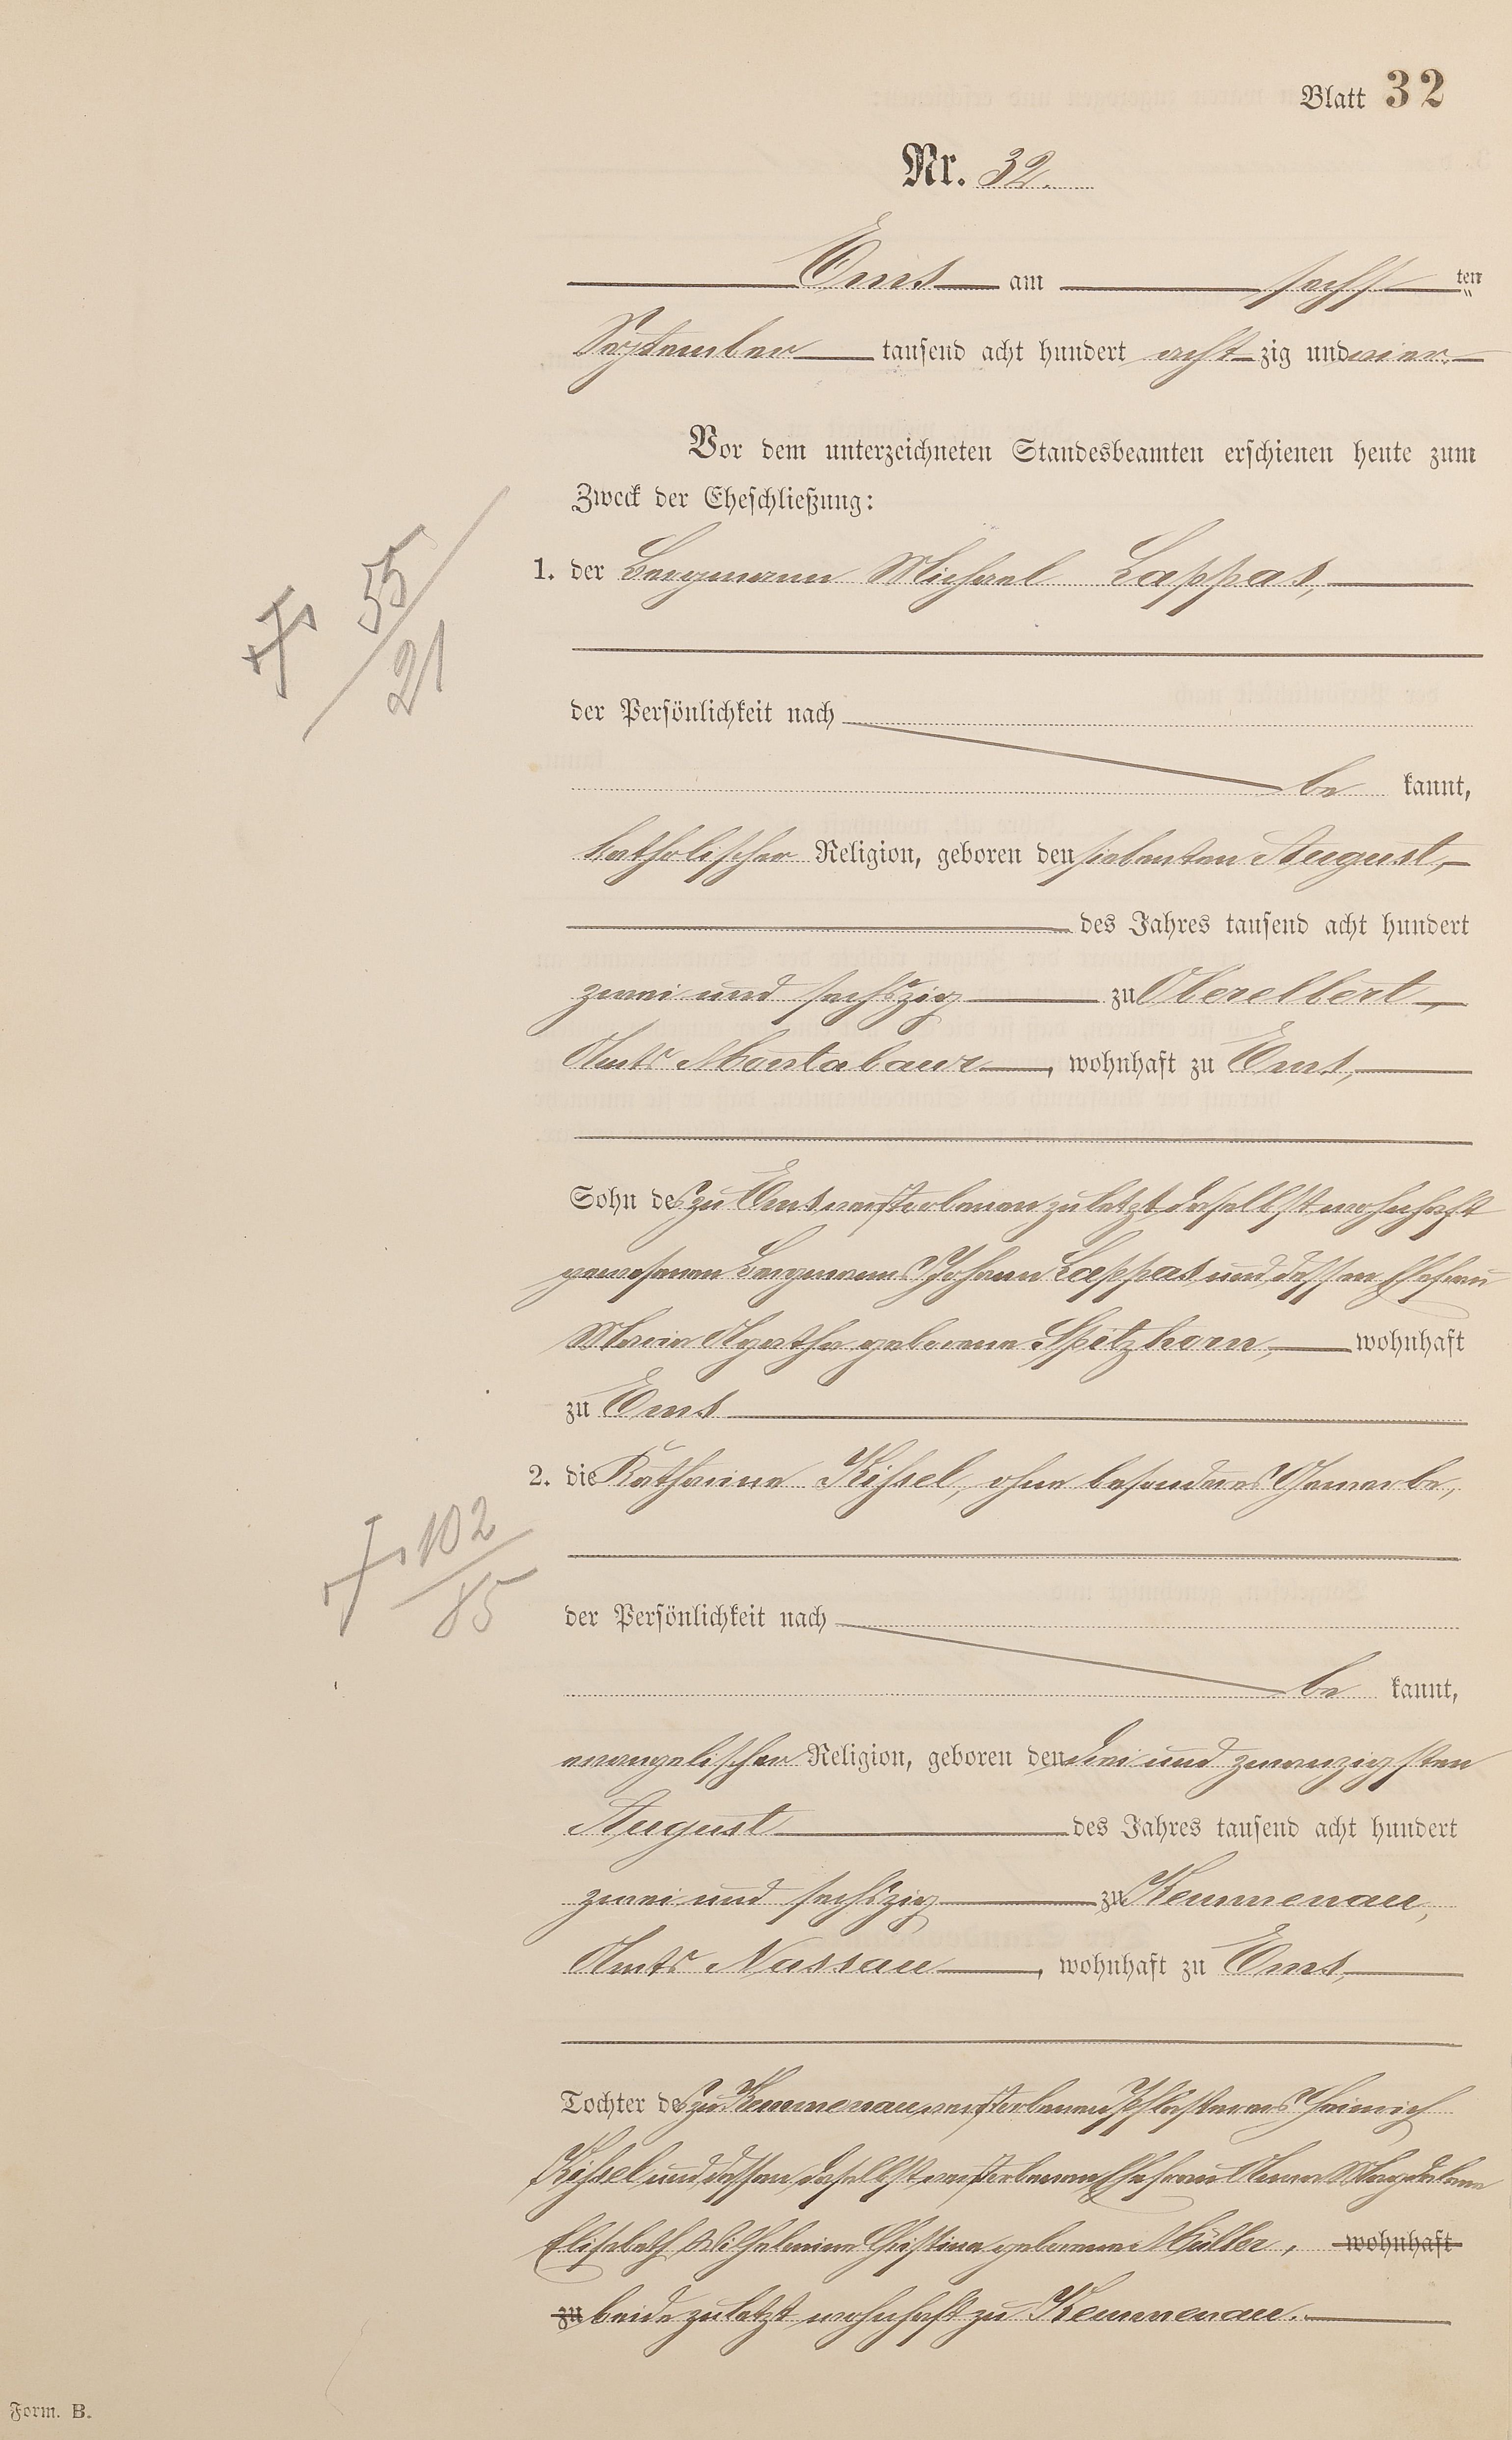 Blatt 32
Nr. 32.
Ems am sechs ten
September tausend acht hundert acht zig und vier
Vor dem unterzeichneten Standesbeamten erschienen heute zum
Zweck der Eheschließung:
1. der Bergmann Michael Lappas,
der Persönlichkeit nach
be kannt,
katholischer Religion, geboren den siebenten August,
des Jahres tausend acht hundert
zwei und sechszig zu Oberelbert,
Amts Montabaur, wohnhaft zu Ems,
Sohn des zu Ems verstorbenen zuletzt daselbst wohnhaft
gewesenen Bergmanns Johann Lappas und dessen Ehefrau
Maria Agatha geborene Spitzhorn, wohnhaft
zu Ems
2. die Katharine Kissel, ohne besonderes Gewerbe,
der Persönlichkeit nach
be kannt,
evangelischer Religion, geboren den drei und zwanzigsten
August des Jahres tausend acht hundert
zwei und sechszig zu Kemmenau,
Amts Nassau, wohnhaft zu Ems,
Tochter des zu Kemmenau verstorbenen Pflasterers Heinrich
Kissel und dessen daselbst verstorbenen Ehefrau Anna Magdalena
Elisabeth Wilhelmine Christina geborene Müller, wohnhaft
zu beide zuletzt wohnhaft zu Kemmenau.
55/21
102/85
Form. B.